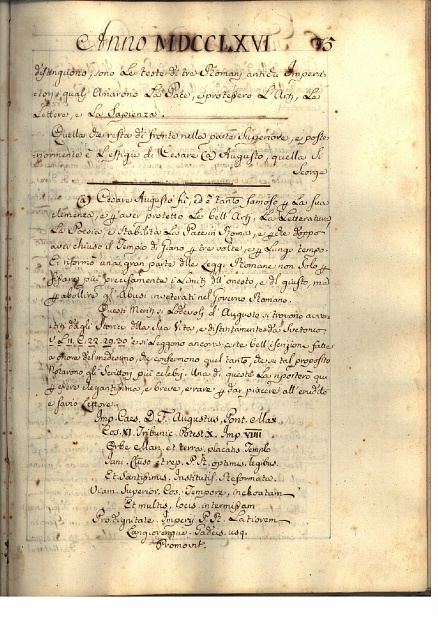 Anno MDCCLXVI
distinguono, sono Le teste di tre Romani antichi Impera-
tori, quali Amarono La Pace, e protessero L'Arti, La
Lettere, e La Sapienza.
Quella che resta di fronte nella parte Superiore, e poste-
riormente è L'effigie di Cesare (a) Augusto, quella Si
Scorge
(a) Cesare Augusto fù, ed è tanto famoso p La sua
clemenza, e p aver protetto Le bell'Arti, La Letteratura
La Poesia, e Stabilita La Pace in Roma, e p che doppo
aver chiuso il Tempio di Giano p tre volte, e p Lungo tempo
riformò una gran parte delle Leggi Romane non Solo p
più precisamente i Limiti dell'onesto, e del giusto, ma
p abollire gl'Abusi invecchiati nel Governo Romano.
Questi Meriti si Lodevoli d'Augusto si trovano
dagli Storici della sua Vita, e distintamente da Suetonio
C. 22. 29. 30 e si Leggono ancora in certe bell'iscrizioni fatte
a onore del medesimo, che confermono quel tanto, che su tal proposito
Notarono gli Scrittori più celebri. Una di queste La riporterò qui
p essere elegantissima, e breve, e rara, e p dar piacere all'erudito
e savio Lettore.
Imp. Caes. D. F. Augustus, Pont. Max
Cos. XI. Tribunic. Potest. X. Imp. VIIII
Orbe Mari, et terra, placatis Templo
Jani, Cluso, et rep. P. R. optimis, legibus
Et Santissimis, Institutis, Reformata
Viam, Superior. Cos. Tempore, inchoatam
Et multis, locis, intermissam
Pro dignitate, Imperii P. R. Latiorem
Longioremque, Gadeis, usq.
Promovit.